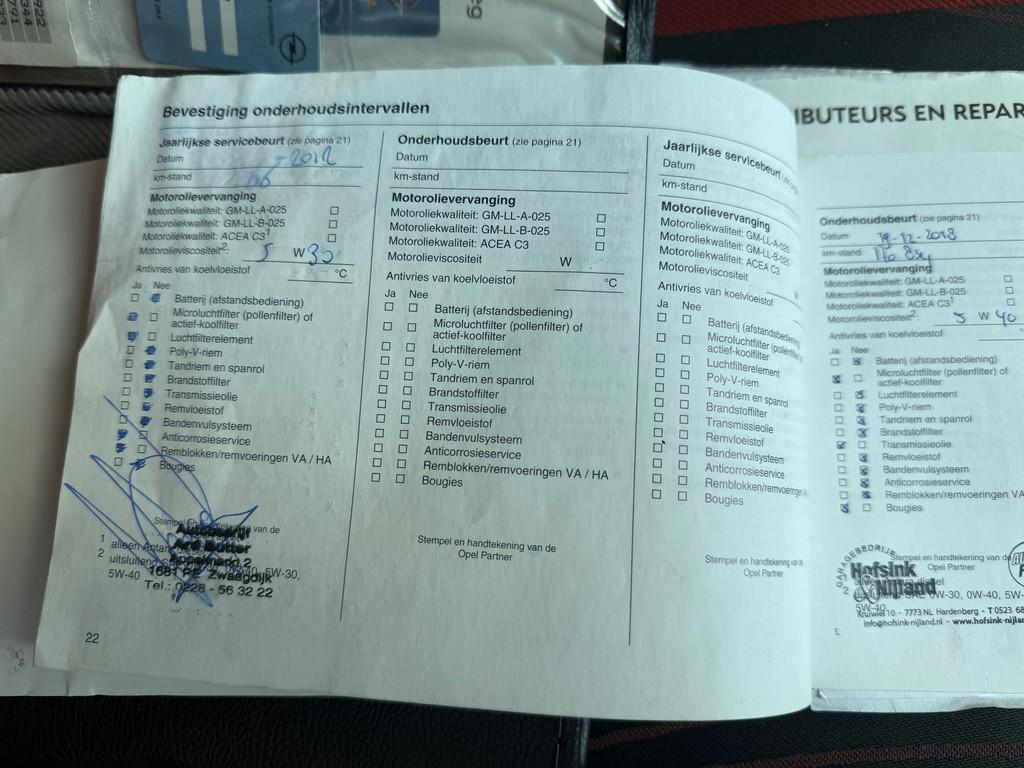 Bevestiging onderhoudsintervallen
Jaarlijkse servicebeurt (zie pagina 21)
Datum 2012
km-stand
Motorolievervanging
Motoroliekwaliteit: GM-LL-A-025
Motoroliekwaliteit: GM-LL-B-025
Motoroliekwaliteit: ACEA C3¹
Motorolieviscositeit²: 5 W 30
Antivries van koelvloeistof °C
Ja Nee
Batterij (afstandsbediening)
Microluchtfilter (pollenfilter) of
actief-koolfilter
Luchtfilterelement
Poly-V-riem
Tandriem en spanrol
Brandstoffilter
Transmissieolie
Remvloeistof
Bandenvulsysteem
Anticorrosieservice
Remblokken/remvoeringen VA / HA
Bougies
Stempel en handtekening van de
Autobedrijf
1 alleen
2 uitsluitend 5W-30,
5W-40
1681 PE Zwaagdijk
Tel.: 0228 - 56 32 22
22
Onderhoudsbeurt (zie pagina 21)
Datum
km-stand
Motorolievervanging
Motoroliekwaliteit: GM-LL-A-025
Motoroliekwaliteit: GM-LL-B-025
Motoroliekwaliteit: ACEA C3
Motorolieviscositeit W
Antivries van koelvloeistof °C
Ja Nee
Batterij (afstandsbediening)
Microluchtfilter (pollenfilter) of
actief-koolfilter
Luchtfilterelement
Poly-V-riem
Tandriem en spanrol
Brandstoffilter
Transmissieolie
Remvloeistof
Bandenvulsysteem
Anticorrosieservice
Remblokken/remvoeringen VA / HA
Bougies
Stempel en handtekening van de
Opel Partner
Jaarlijkse servicebeurt (zie pagina
Datum
km-stand
Motorolievervanging
Motoroliekwaliteit: GM-LL-A-025
Motoroliekwaliteit: GM-LL-B-025
Motoroliekwaliteit: ACEA C3
Motorolieviscositeit
Antivries van koelvloeistof
Ja Nee
Batterij (afstandsbediening)
Microluchtfilter (pollenfilter)
actief-koolfilter
Luchtfilterelement
Poly-V-riem
Tandriem en spanrol
Brandstoffilter
Transmissieolie
Remvloeistof
Bandenvulsysteem
Anticorrosieservice
Remblokken/remvoeringen
Bougies
Stempel en handtekening van de
Opel Partner
IBUTEURS EN REPAR
Onderhoudsbeurt (zie pagina 21)
Datum 19-12-2018
km-stand
Motorolievervanging
Motoroliekwaliteit: GM-LL-A-025
Motoroliekwaliteit: GM-LL-B-025
Motoroliekwaliteit: ACEA C3¹
Motorolieviscositeit²: 5 W 40
Antivries van koelvloeistof
Ja Nee
Batterij (afstandsbediening)
Microluchtfilter (pollenfilter) of
actief-koolfilter
Luchtfilterelement
Poly-V-riem
Tandriem en spanrol
Brandstoffilter
Transmissieolie
Remvloeistof
Bandenvulsysteem
Anticorrosieservice
Remblokken/remvoeringen VA
Bougies
Stempel en handtekening van de
Opel Partner
GARAGEBEDRIJF
Hofsink
Nijland
0W-30, 0W-40, 5W-
5W-40
10 - 7773 NL Hardenberg - T 0523 68
info@hofsink-nijland.nl - www.hofsink-nijla